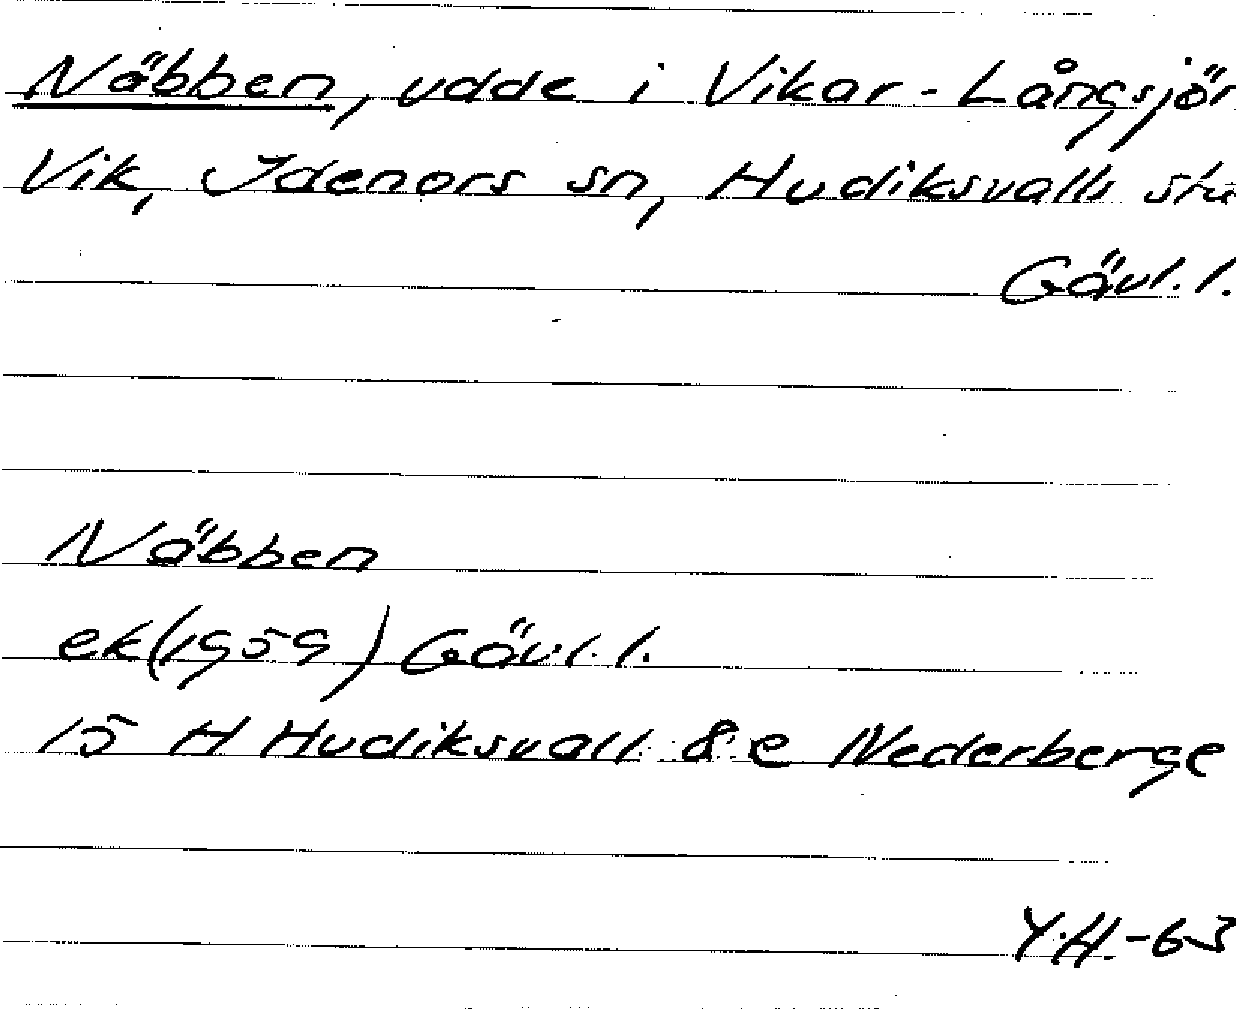 Näbben, udde i Vikar-Långsjön
Vik, Idenors sn, Hudiksvalls sta
Gävl.l.
Näbben
ek(1959) Gävl.l.
15 H Hudiksvall 8 e Nederberge
Y.H.-63